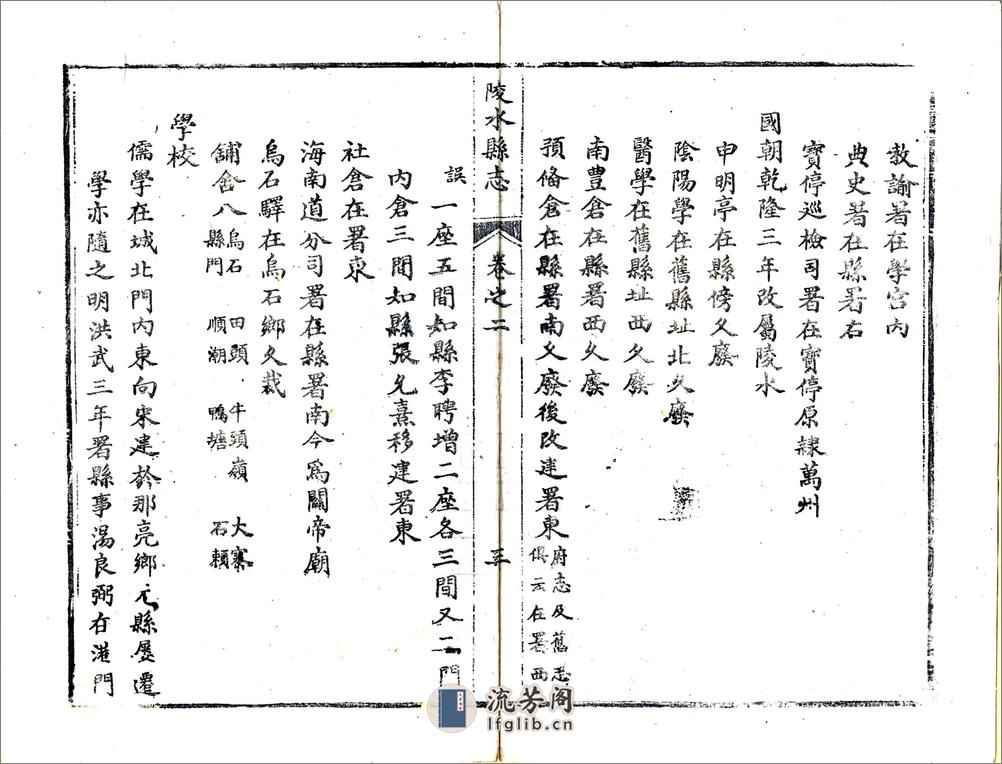 教諭署在學宮内
典史署在縣署右
寳停巡檢司署在寳停原隸萬州
國朝乾隆三年改屬陵水
申明亭在縣傍久廢
陰陽學在舊縣址北久廢
醫學在舊縣址西久廢
南豊倉在縣署西久廢
預俻倉在縣署南久廢後改建署東府志及舊志俱云在署西
陵水縣志 卷之二 三
誤
一座五間知縣李聘增二座各三間又二門
内倉三間知縣張允熹移建署東
社倉在署東
海南道分司署在縣署南今爲關帝廟
烏石驛在烏石鄉久裁
舖舍八烏石 田頭 牛頭嶺 大寨 縣門 順潮 鴨塘 石賴
學校
儒學在城北門内東向宋建於那亮鄉元縣歷遷
學亦隨之明洪武三年署縣事湯良弼在港門
流芳阁
lfglib.cn